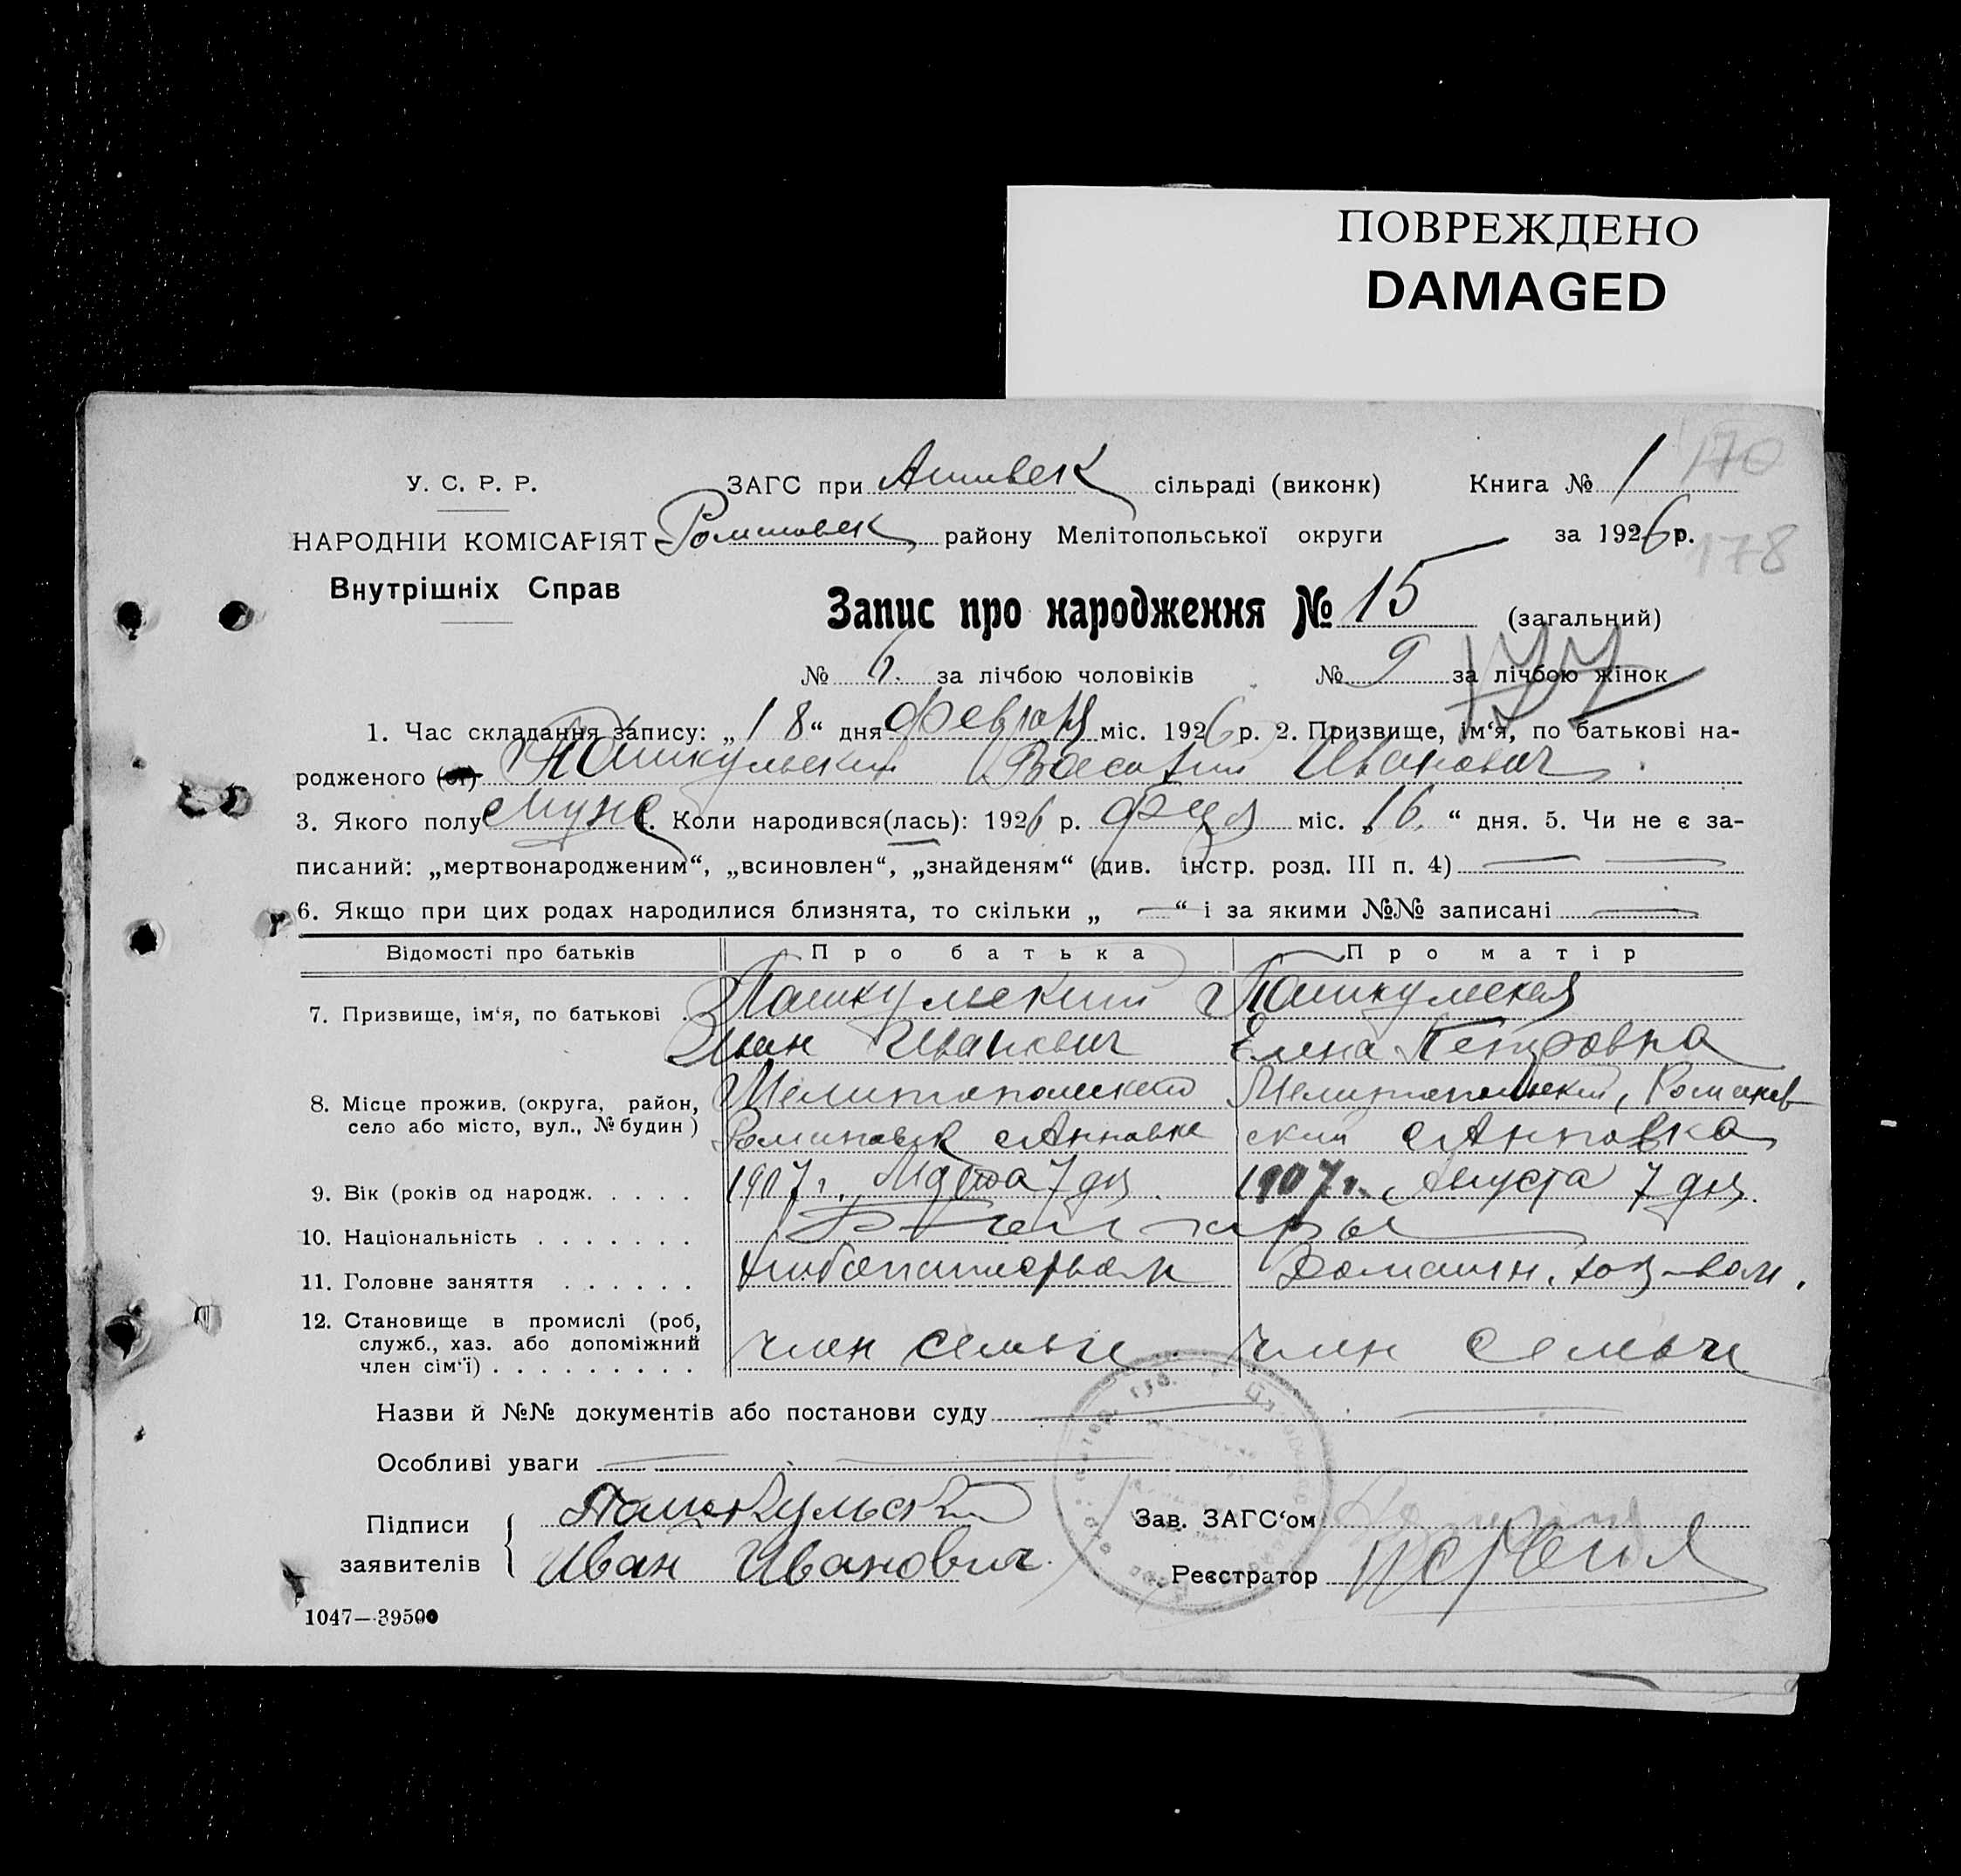 ПОВРЕЖДЕНО
DAMAGED
170
178
У. С. Р. Р.
НАРОДНІЙ КОМІСАРІЯТ
Внутрішніх Справ
ЗАГС при Аннвск сільраді (виконк) Книга № 1
Романовск району Мелітопольської округи за 1926 р.
Запис про народження № 15 (загальний)
177
№ 6. за лічбою чоловіків № 9 за лічбою жінок
1. Час складання запису: „18“ дня февраля міс. 1926 р. 2. Призвище, ім‘я, по батькові на-
родженого Пашкульский Василий Иванович.
3. Якого полу муж 4. Коли народився(лась): 1926 р. міс. „16“ дня. 5. Чи не є за-
писаний: „мертвонародженим“, „всиновлен“, „знайденям“ (див. інстр. розд. III п. 4)
6. Якщо при цих родах народилися близнята, то скільки „ — “ і за якими №№ записані —
Відомості про батьків Про батька Про матір
7. Призвище, ім‘я, по батькові . Пашкульский Пашкульская
Иван Иванович Елена Петровна
8. Місце прожив. (округа, район, село або місто, вул., № будин) Мелитопольский Мелитопольский, Романов-
Романовск с Анновка ский с Анновка
9. Вік (років од народж. . . . . . 1907 г. Марта 7 дня. 1907 г. Августа 7 дня.
10. Національність . . . . . . . Болгары
11. Головне заняття . . . . . . хлебопашество Домашн. хоз-вом.
12. Становище в промислі (роб, служб., хаз. або допоміжний член сім‘ї) . . . . . . . . . член семьи член семьи
Назви й №№ документів або постанови суду —
Особливі уваги —
Підписи заявителів { Пашкульский
Иван Иванович
Зав. ЗАГС‘ом
Реєстратор
1047—39500